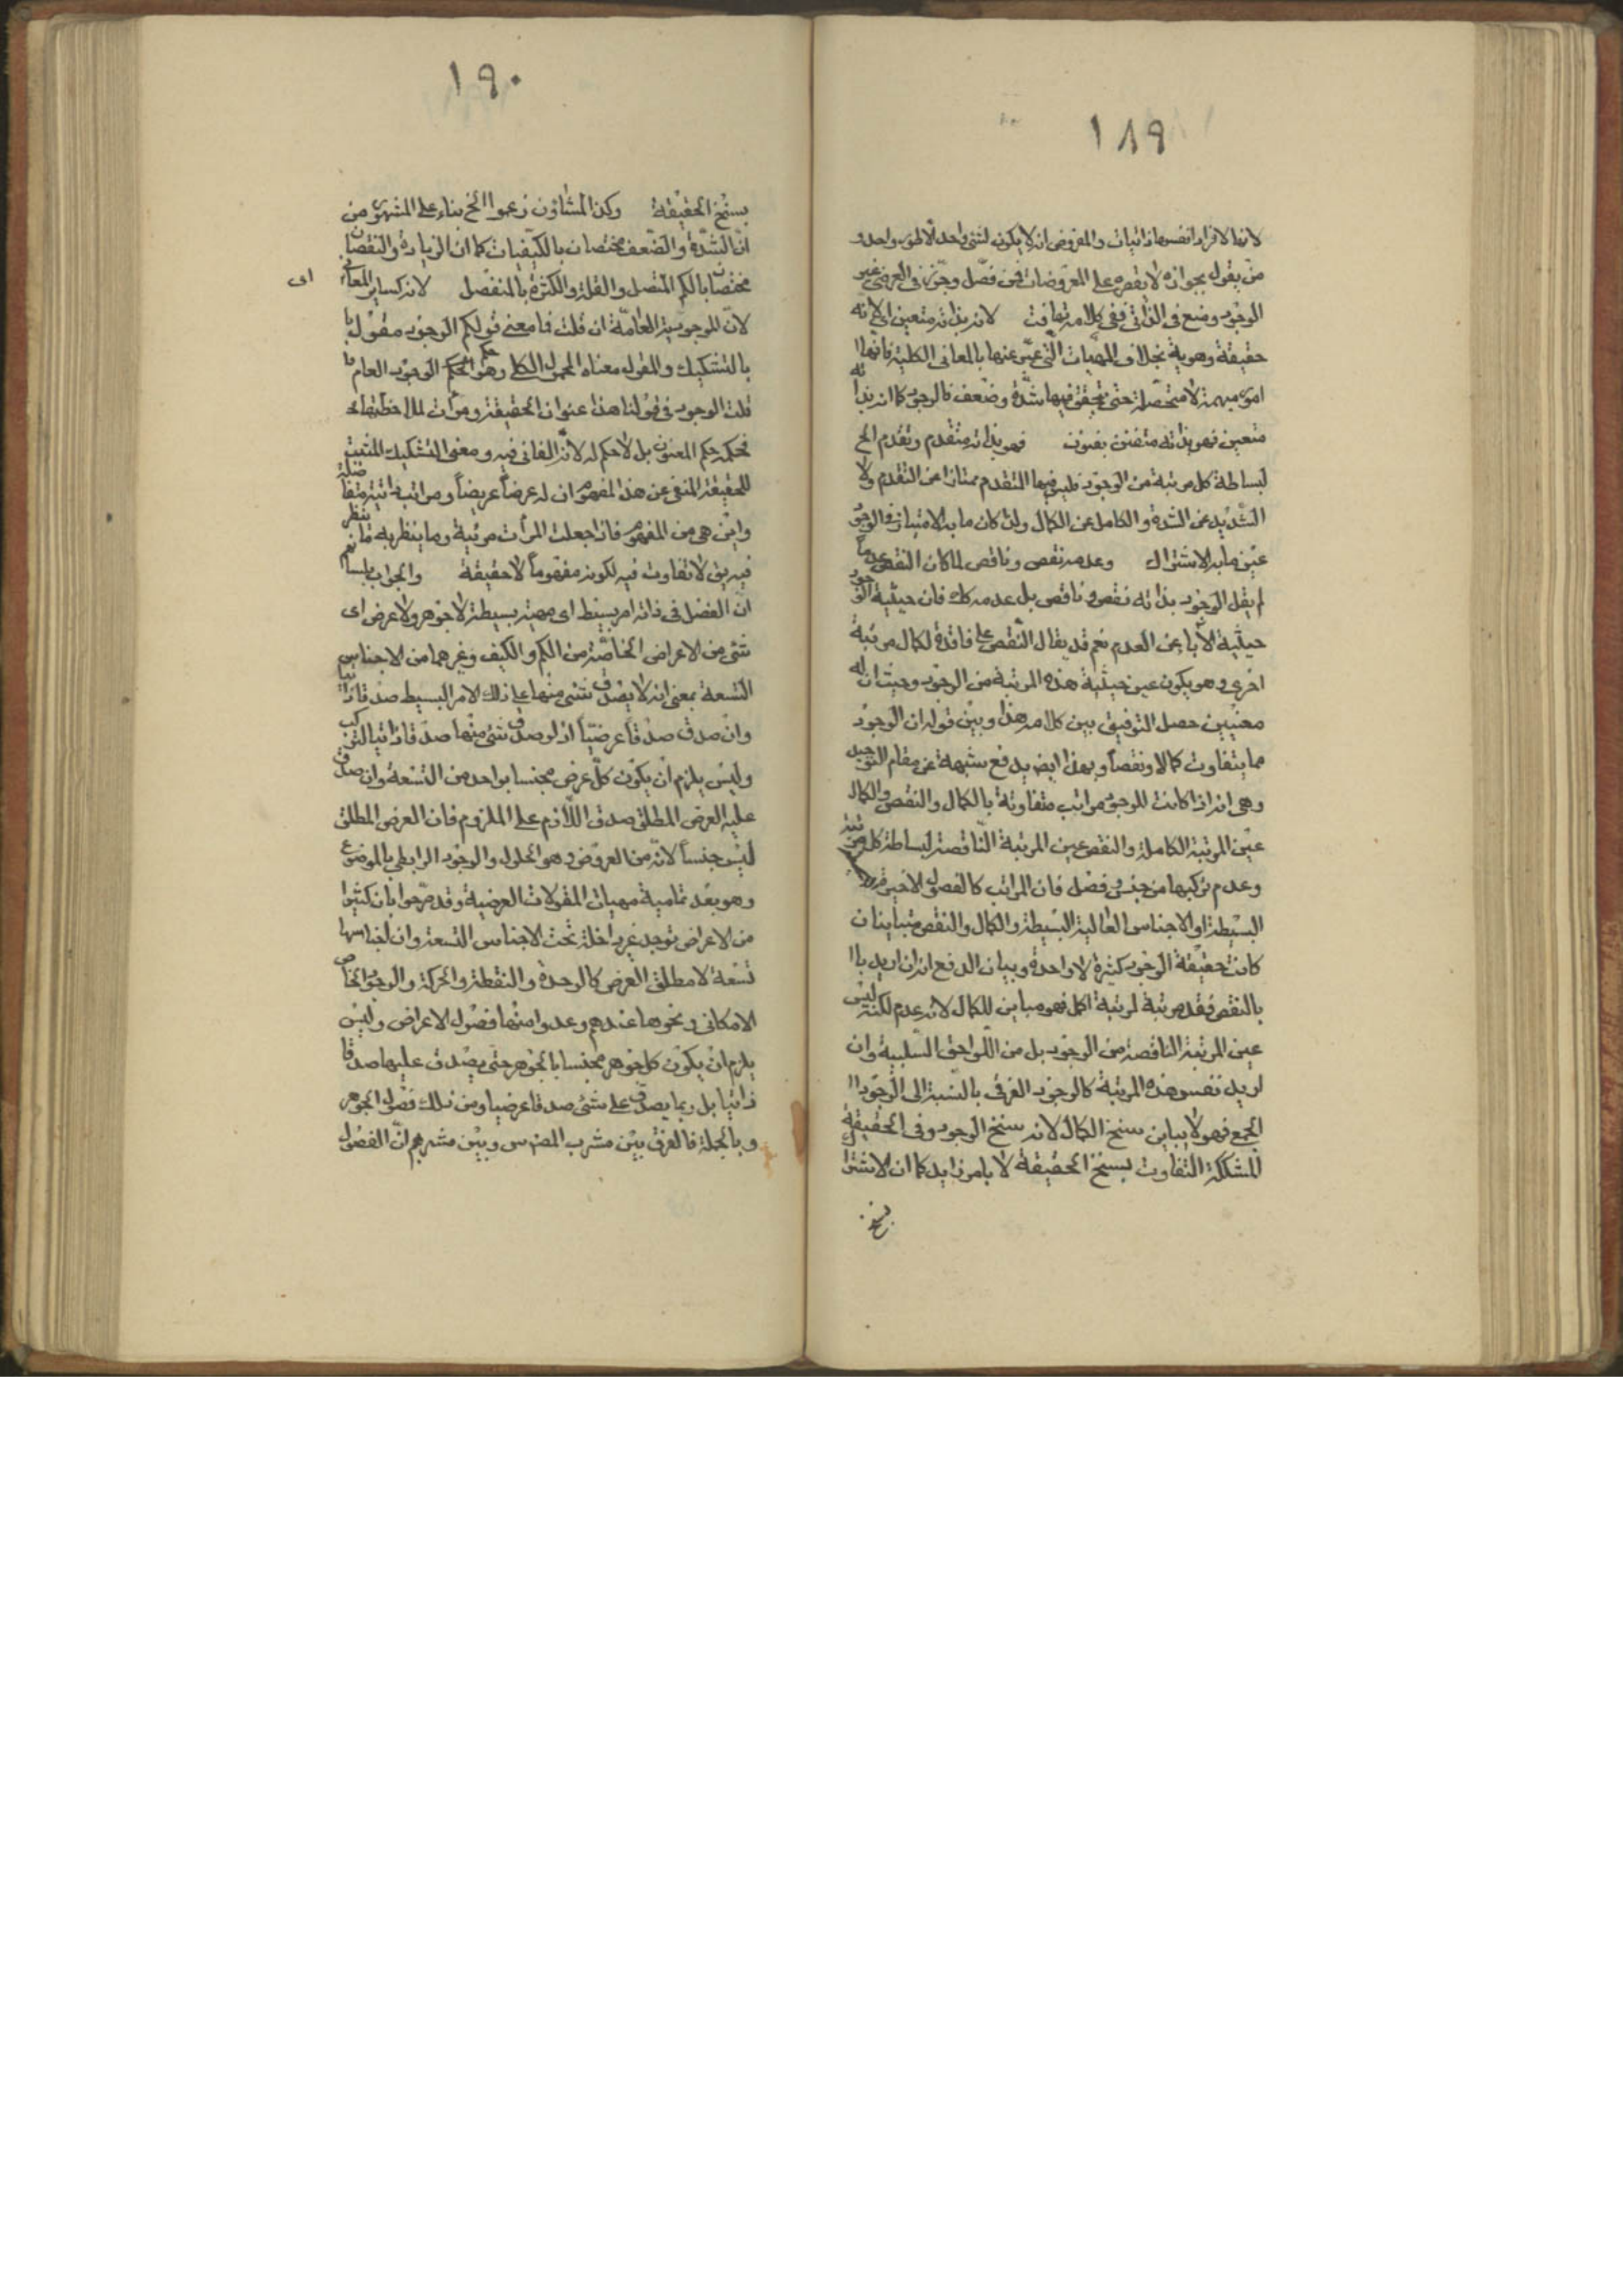 ١٨٩
لانها لافراد انفسها ذاتيات والمفروض انه لا يكون لشئ واحد الا طور واحد و
من يقول بجوازه لا يقصره على المعروضات فمن فصل وجوز في العرضي غير
الوجود وضع في الذاتي ففي كلامه تهافت لانه بذاته متعين اي لانه
حقيقة وهوية بخلاف المهيات التي عبر عنها بالمعاني الكلية فانها ا
امور مبهمة لا متحصلة حتى يتحقق فيها شدة وضعف فالوجود كما انه بذاته
متعين فهو بذاته متفنن بفنون فهو بذاته متقدم وتقدم الخ
لبساطة كل مرتبة من الوجود فليس فيها المتقدم ممتازا عن التقدم ولا
الشديد عن الشدة والكامل عن الكمال ولذا كان ما به الامتياز في الوجود
عين ما به الاشتراك وعدمه نقص وناقص لما كان النقص عدما
لم يقل الوجود بذاته نقص وناقص بل عدمه كك فان حيثية الوجود
حيثية الاباء عن العدم نعم قد يقال النقص على فاقدة لكمال مرتبة
اخرى وهو يكون عين حيثية هذه المرتبة من الوجود وحيث ان له
معنيين حصل التوفيق بين كلامه هذا وبين قوله ان الوجود
مما يتفاوت كمالا ونقصا وبهذا ايضا يدفع شبهة عن مقام التوحيد
وهي انه اذا كانت للوجود مراتب متفاوتة بالكمال والنقص والكمال
عين المرتبة الكاملة والنقص عين المرتبة الناقصة لبساطة كل مرتبة
وعدم تركبها من جنس وفصل فان المراتب كالفصول الاخيرة
البسيطة او الاجناس العالية البسيطة والكمال والنقص متباينان
كانت حقيقة الوجود كثيرة لا واحدة وبيان الدفع انه ان اريد با
بالنقص فقد مرتبة لمرتبة اكمل فهو مباين للكمال لانه عدم لكنه ليس
عين المرتبة الناقصة من الوجود بل من اللواحق السلبية وان
اريد نفس هذه المرتبة كالوجود الفرقي بالنسبة الى الوجود ا
الجمع فهو لا يباين سنخ الكمال لانه سنخ الوجود وفي الحقيقة
المشككة التفاوت بسنخ الحقيقة لا بامر زايد كما ان الاشترا
بسنخ
١٩٠
بسنخ الحقيقة وكذا المشاؤن زعموا الخ بناء على المشهور من
ان الشدة والضعف مختصان بالكيفيات كما ان الزيادة والنقصان
مختصان بالكم المتصل والقلة والكثرة بالمنفصل لانه كساير المعاني
اى
لان للموجودية العامة ان قلت فما معنى قولكم الوجود مقول با
بالتشكيك والمقول معناه المحمول الكلي وهو حكم الوجود العام
قلت الوجود في قولنا هذا عنوان الحقيقة ومرآت لملاحظتها
فحكمه حكم المعنون بل لا حكم له لانه الفاني فيه ومعنى التشكيك المثبت
للحقيقة المنفي عن هذا المفهوم ان له عرضا عريضا ومراتب ذاتية متفاضلة
واين هي من المفهوم فاذا جعلت المرآت مرئية وما ينظر به ما ينظر
فيه يق لا تفاوت فيه لكونه مفهوما لا حقيقة والجواب
ان الفصل في ذاته امر بسيط اى مهية بسيطة لا جوهر ولا عرض اى
شئ من الاعراض الخاصة من الكم والكيف وغيرهما من الاجناس
التسعة بمعنى انه لا يصدق شئ منها على ذلك الامر البسيط صدقا ذاتيا
وان صدق صدقا عرضيا اذ لو صدق شئ منها صدقا ذاتيا لتركب
وليس يلزم ان يكون كل عرض مجنسا بواحد من التسعة وان صدق
عليه العرض المطلق صدق اللازم على الملزوم فان العرض المطلق
ليس جنسا لانه من العروض وهو الحلول والوجود الرابطي بالموضوع
وهو بعد تمامية مهيات المقولات العرضية وقد صرحوا بان كثيرا
من الاعراض توجد غير داخلة تحت الاجناس التسعة وان اجناسها
تسعة لا مطلق العرض كالوحدة والنقطة والحركة والوجود الخاص
الامكاني ونحوها عندهم وعدوا منها فصول الاعراض وليس
يلزم ان يكون كل جوهر مجنسا بالجوهر حتى يصدق عليها صدقا
ذاتيا بل ربما يصدق على شئ صدقا عرضيا ومن ذلك فصول الجوهر
وبالجملة فالفرق بين مشرب المص س وبين مشربهم ان الفصول